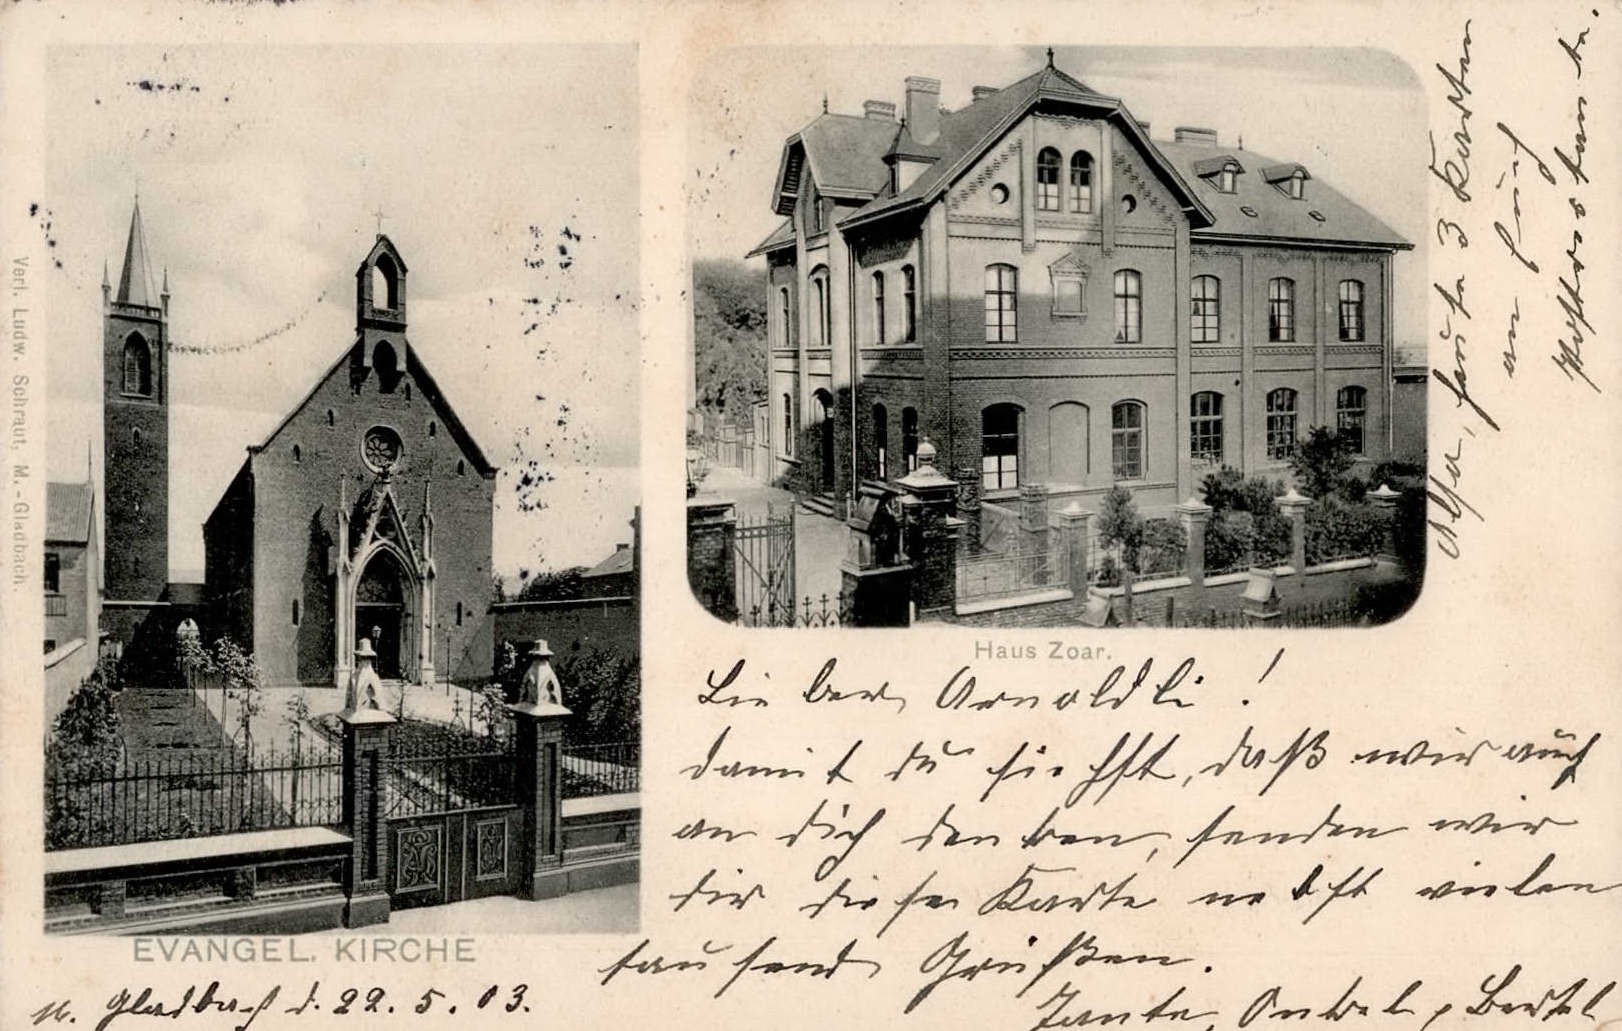 Verl. Ludw. Schraut, M.-Gladbach.
EVANGEL. KIRCHE
Haus Zoar.
M. Gladbach d. 22. 5. 03.
Lieber Arnoldli!
damit du siehst, daß wir auch
an dich denken, senden wir
dir diese Karte nebst vielen
tausend Grüßen.
Tante, Onkel, Bertel
heute 3 Karten
an